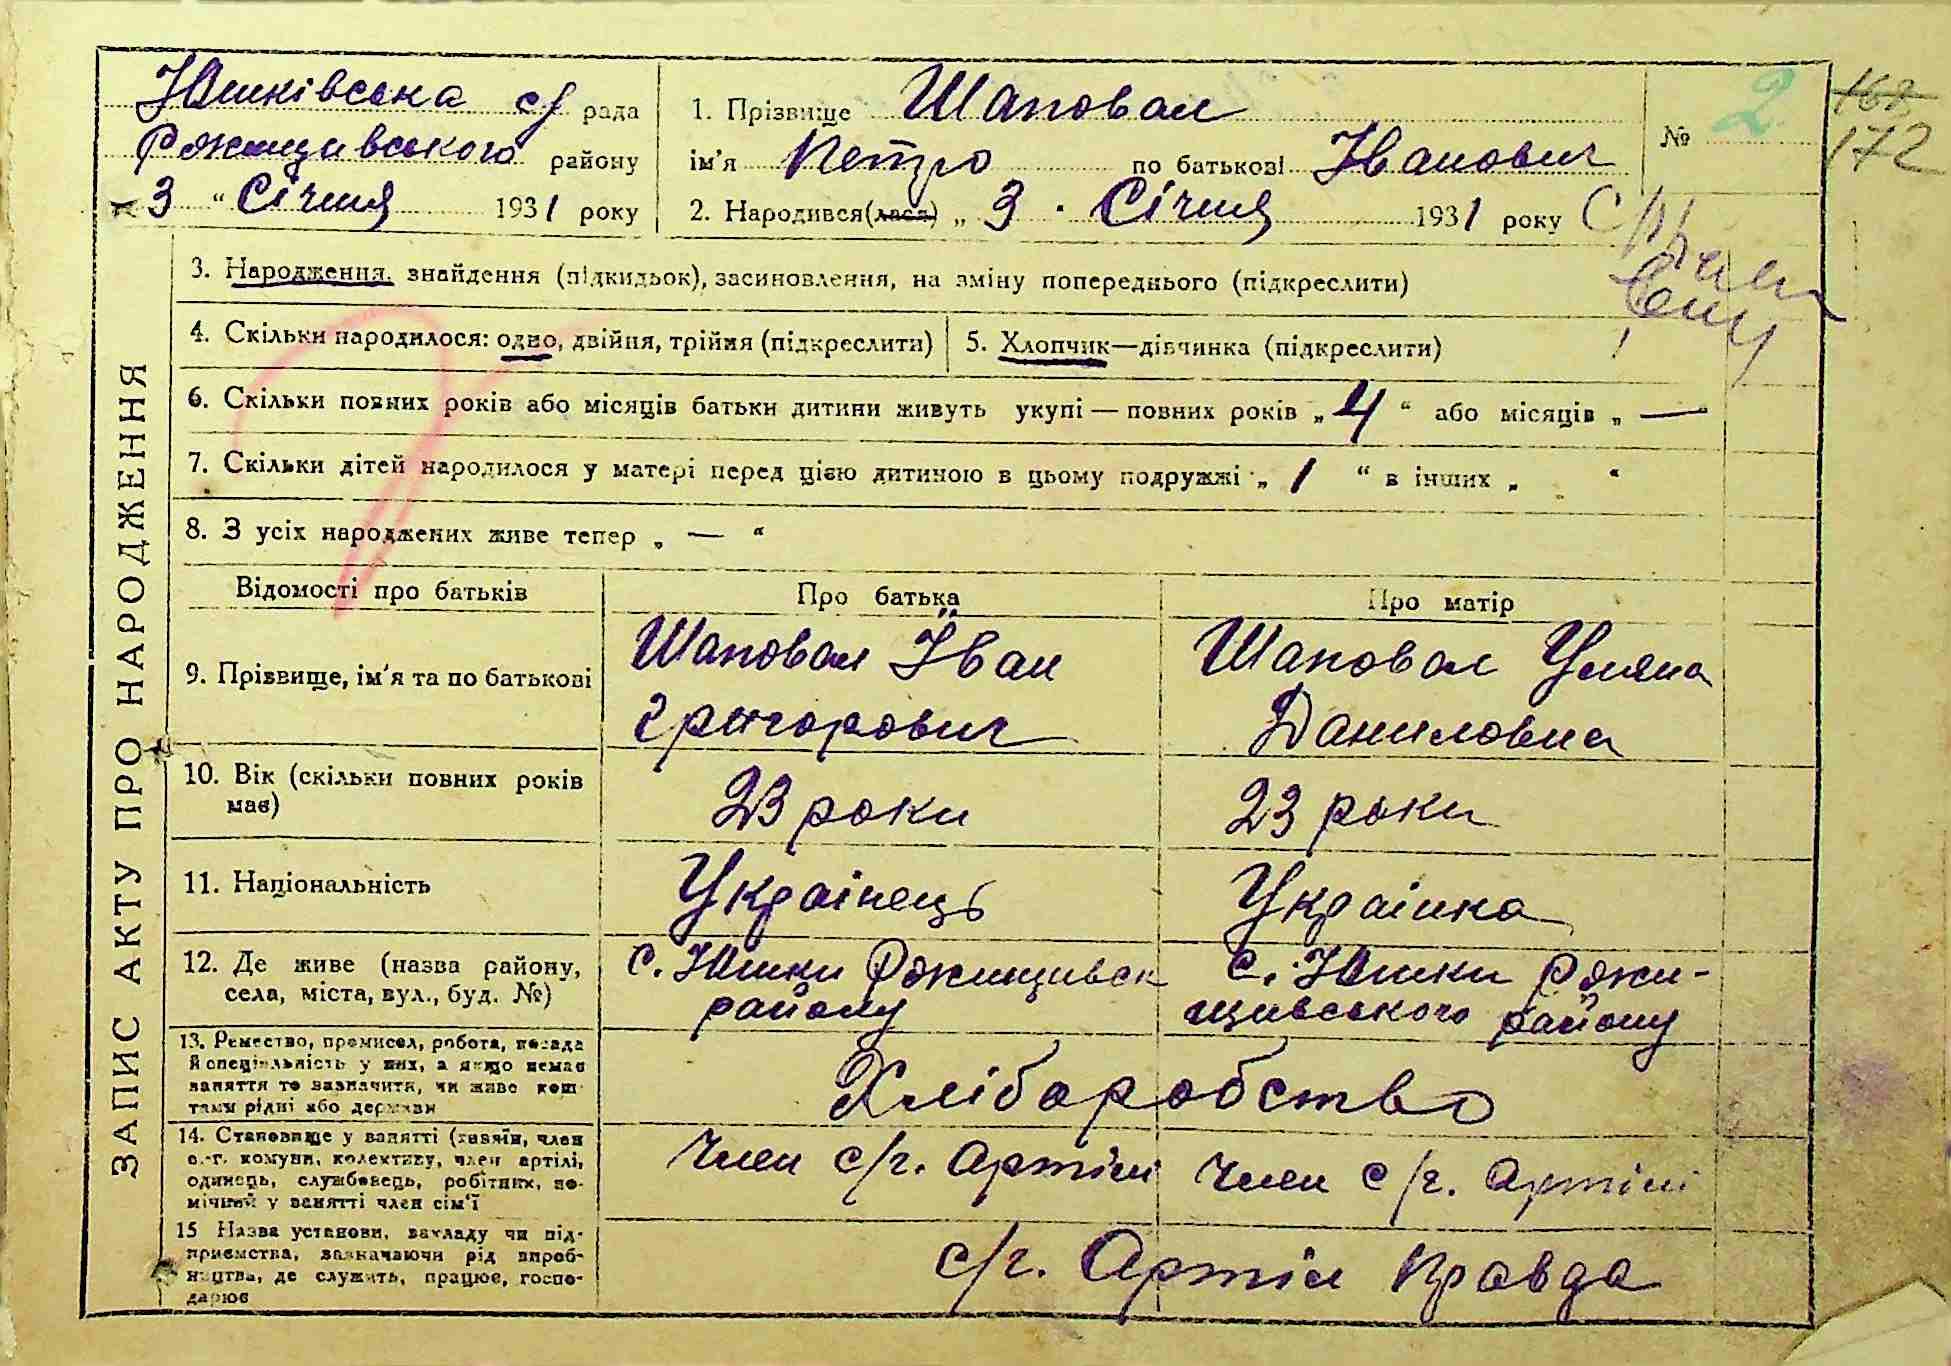 Юшківська с/ рада
Ржищивського району
3 " Січня 1931 року
1. Прізвище Шаповал
ім'я Петро по батькові Іванович
2. Народився(лася) „ 3 . Січня 1931 року
№ 2
168
172
3. Народження, знайдення (підкидьок), засиновлення, на зміну попереднього (підкреслити)
4. Скільки народилося: одно, двійня, трійня (підкреслити)
5. Хлопчик—дівчинка (підкреслити)
6. Скільки повних років або місяців батьки дитини живуть укупі — повних років „ 4 “ або місяців „ — “
7. Скільки дітей народилося у матері перед цією дитиною в цьому подружжі „ 1 “ в інших „ “
8. З усіх народжених живе тепер „ — “
ЗАПИС АКТУ ПРО НАРОДЖЕННЯ
Відомості про батьків
Про батька
Про матір
9. Прізвище, ім'я та по батькові
Шаповал Іван
Григорович
Шаповал Уляна
Даниловна
10. Вік (скільки повних років
має)
23 роки
23 роки
11. Національність
Українець
Українка
12. Де живе (назва району,
села, міста, вул., буд. №)
с. Юшки Ржищивськ
району
С. Юшки Ржи-
щивського району
13. Ремество, промисел, робота, посада
й спеціяльність у них, а якщо немає
заняття то зазначити, чи живе кош-
тами рідні або держави
Хліборобство
14. Становище у занятті (хазяїн, член
с.-г. комуни, колективу, член артілі,
одинець, службовець, робітник, по-
мічний у занятті член сім'ї
Член с/г. Артіли
Член с/г. Артіли
15 Назва установи, закладу чи під-
приємства, зазначаючи рід вироб-
ництва, де служить, працює, госпо-
дарює
с/г. Артіл Правда